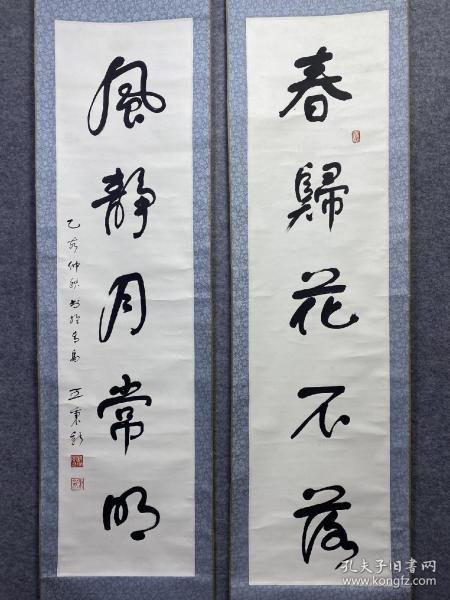 春歸花不落
風靜月常明
乙亥仲秋書於青島
孔夫子旧书网
www.kongfz.com